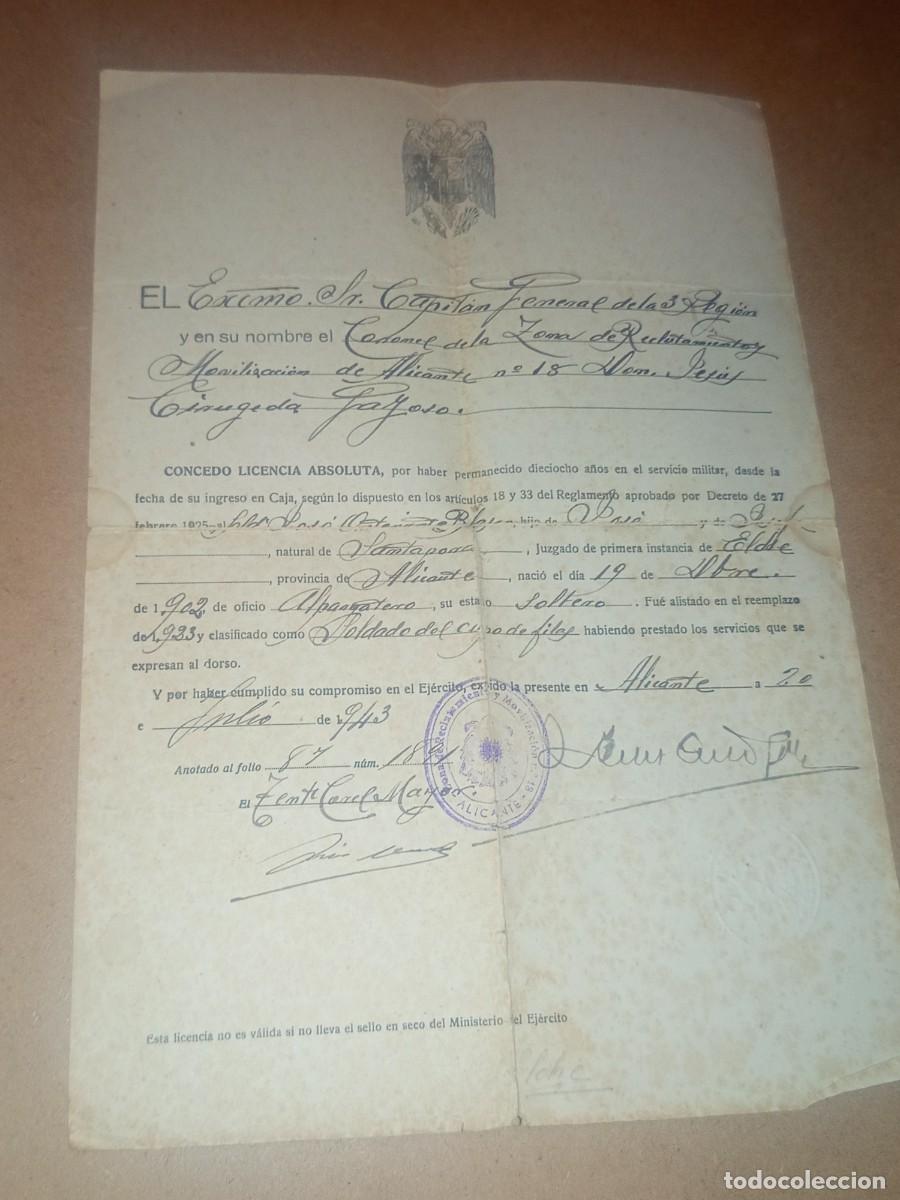 EL Excmo. Sr. Capitán General de la 3ª Región
y en su nombre el Coronel de la Zona de Reclutamiento y
Movilización de Alicante nº 18 Don Jesús
Cirugeda Gayoso.
CONCEDO LICENCIA ABSOLUTA, por haber permanecido dieciocho años en el servicio militar, desde la
fecha de su ingreso en Caja, según lo dispuesto en los artículos 18 y 33 del Reglamento aprobado por Decreto de 27
febrero 1925 al José hijo de José y de
, natural de Santapola, Juzgado de primera instancia de Elche
, provincia de Alicante, nació el día 19 de Dbre.
de 1.902, de oficio Alpargatero, su esta o soltero. Fué alistado en el reemplazo
de 1.923 y clasificado como Soldado del cupo de filas habiendo prestado los servicios que se
expresan al dorso.
Y por haber cumplido su compromiso en el Ejército, expido la presente en Alicante a 20
e Julio de 1943
Anotado al folio 87 núm.
El Tente Corel Mayor.
Zona de Reclutamiento y Movilización nº 18 • ALICANTE •
Esta licencia no es válida si no lleva el sello en seco del Ministerio del Ejército
Elche
todocoleccion